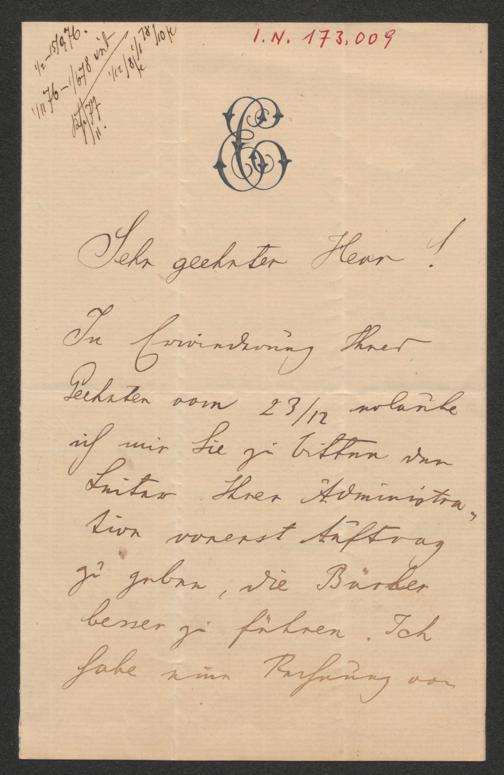 I. N. 173.009
Sehr geehrter Herr !
In Erwiederung Ihres
Geehrten vom 23/12 erlaube
ich mir Sie zu bitten dem
Leiter Ihrer Administra-
tion vorerst Auftrag
zu geben, die Bücher
besser zu führen. Ich
habe eine Rechnung von